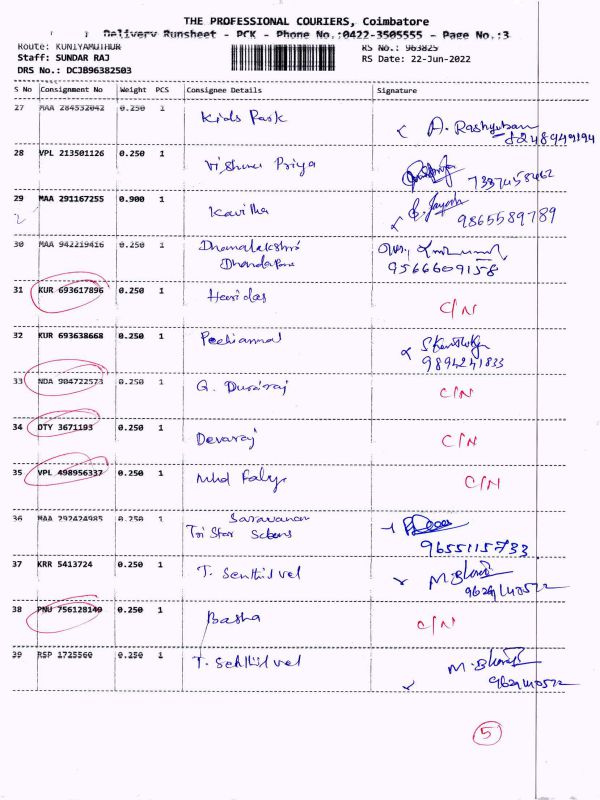 THE PROFESSIONAL COURIERS, Coimbatore
Delivery Runsheet - PCK - Phone No.:0422-3505555 - Page No.:3
Route: KUNIYAMUTHUR RS No.: 963825
Staff: SUNDAR RAJ RS Date: 22-Jun-2022
DRS No.: DCJB96382503
S No Consignment No Weight PCS Consignee Details Signature
27 MAA 284532042 0.250 1 Kids Park
A. 8248949194
28 VPL 213501126 0.250 1 Vishnu Priya
7337458462
29 MAA 291167255 0.900 1 Kavitha
9865589789
30 MAA 942219416 0.250 1 Dhanalakshmi
9566609158
31 KUR 693617896 0.250 1 Haridas C/N
32 KUR 693638668 0.250 1 Pechiammal
9894241833
33 NDA 904722573 0.250 1 G. Durairaj C/N
34 DTY 3671193 0.250 1 Devaraj C/N
35 VPL 498956337 0.250 1 Mhd C/N
36 MAA 292424985 0.250 1 Saravanan
Tri Star
9655115733
37 KRR 5413724 0.250 1 T. Senthil vel M.
9629140522
38 PNU 756128149 0.250 1 Basha C/N
39 RSP 1725560 0.250 1 T. Senthil vel M.
9629140522
5